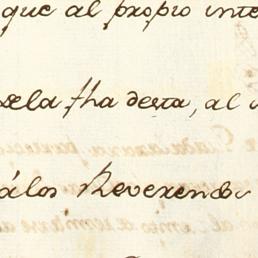 que al propio inte
dela fha desta, al
álos Reverendos